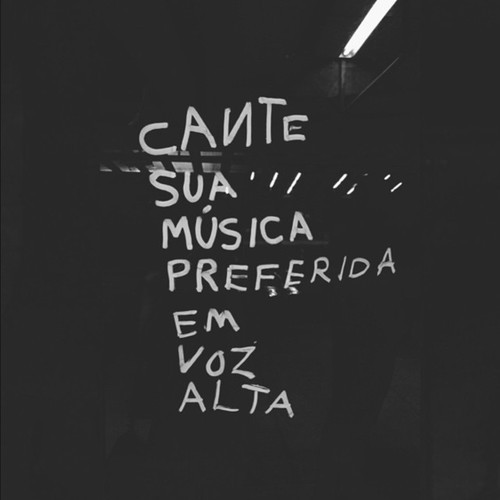 CANTE
SUA
MÚSICA
PREFERIDA
EM
VOZ
ALTA